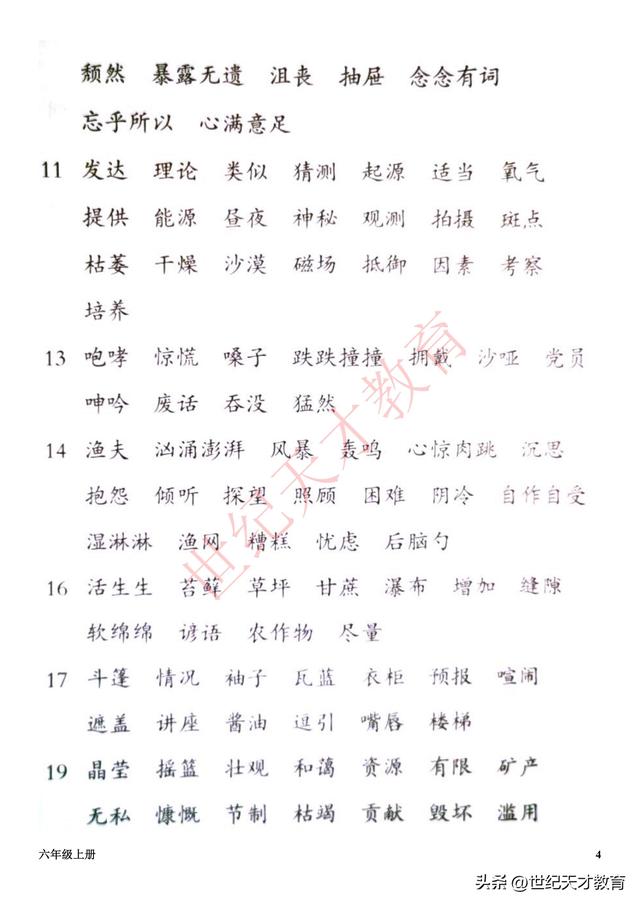 颓然 暴露无遗 沮丧 抽屉 念念有词
忘乎所以 心满意足
11 发达 理论 类似 猜测 起源 适当 氧气
提供 能源 昼夜 神秘 观测 拍摄 斑点
枯萎 干燥 沙漠 磁场 抵御 因素 考察
培养
13 咆哮 惊慌 嗓子 跌跌撞撞 拥戴 沙哑 党员
呻吟 废话 吞没 猛然
14 渔夫 汹涌澎湃 风暴 轰鸣 心惊肉跳 沉思
抱怨 倾听 探望 照顾 困难 阴冷 自作自受
湿淋淋 渔网 糟糕 忧虑 后脑勺
16 活生生 苔藓 草坪 甘蔗 瀑布 增加 缝隙
软绵绵 谚语 农作物 尽量
17 斗篷 情况 袖子 瓦蓝 衣柜 预报 喧闹
遮盖 讲座 酱油 逗引 嘴唇 楼梯
19 晶莹 摇篮 壮观 和蔼 资源 有限 矿产
无私 慷慨 节制 枯竭 贡献 毁坏 滥用
世纪天才教育
六年级上册 4
头条@世纪天才教育